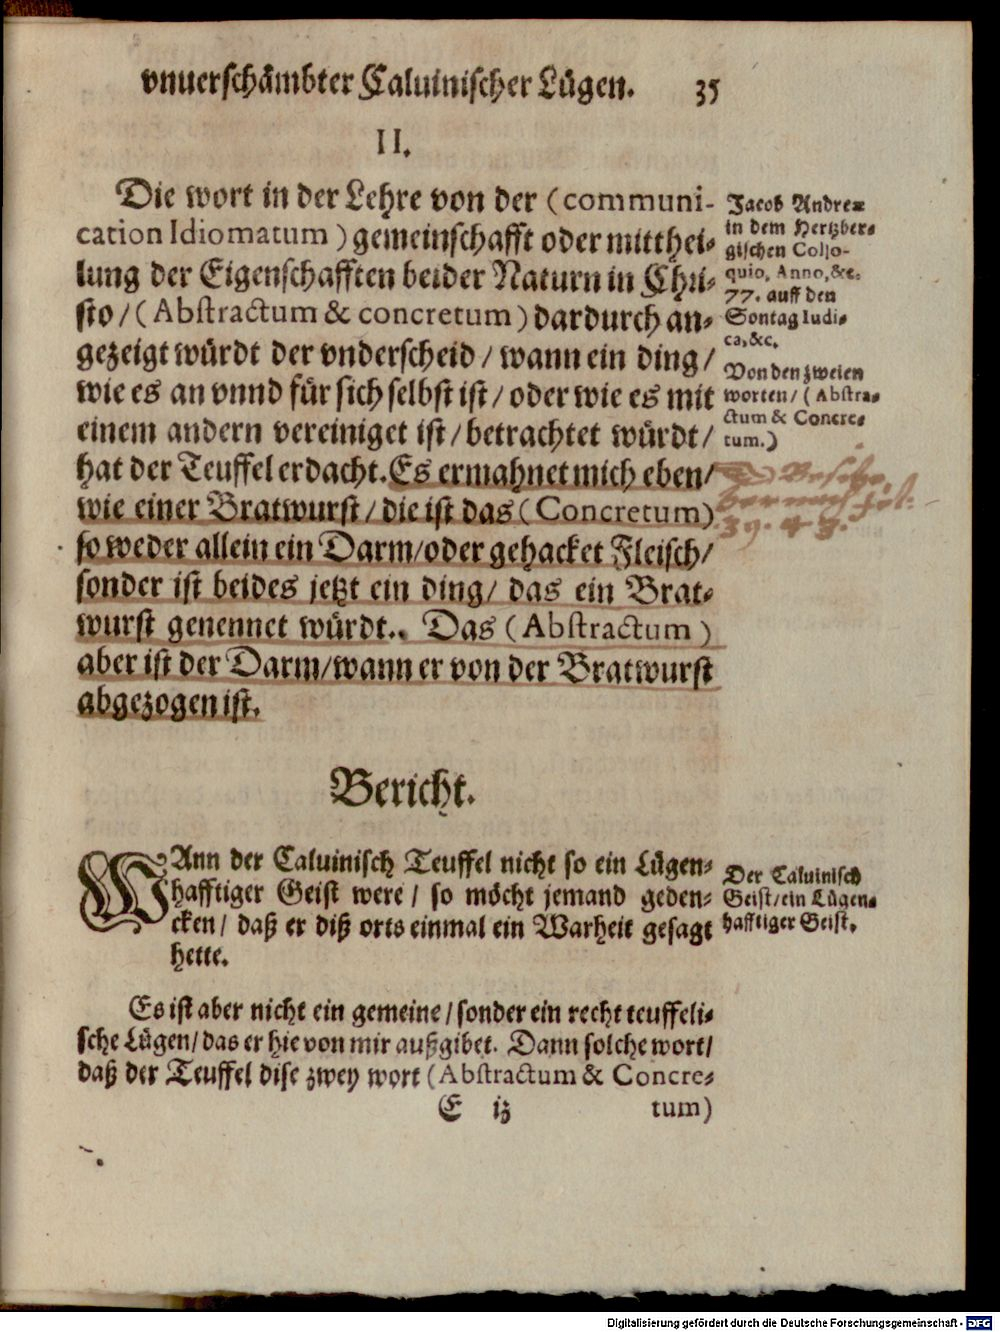 vnuerschämbter Caluinischer Lügen. 35
II.
Die wort in der Lehre von der (communi-
cation Idiomatum) gemeinschafft oder mitthei-
lung der Eigenschafften beider Naturn in Chri-
sto/ (Abstractum & concretum) dardurch an-
gezeigt würdt der vnderscheid / wann ein ding /
wie es an vnnd für sich selbst ist / oder wie es mit
einem andern vereiniget ist / betrachtet würdt /
hat der Teuffel erdacht. Es ermahnet mich eben /
wie einer Bratwurst / die ist das (Concretum)
so weder allein ein Darm / oder gehacket Fleisch /
sonder ist beides jetzt ein ding / das ein Brat-
wurst genennet würdt. Das (Abstractum)
aber ist der Darm / wann er von der Bratwurst
abgezogen ist.
Jacob Andreæ
in dem Hertzber-
gischen Collo-
quio, Anno, &c.
77. auff den
Sontag Iudi-
ca, &c.
Von den zweien
worten / (Abstra-
ctum & Concre-
tum.)
39. 43.
Bericht.
WAnn der Caluinisch Teuffel nicht so ein Lügen-
hafftiger Geist were / so möcht jemand geden-
cken / daß er diß orts einmal ein Warheit gesagt
hette.
Der Caluinisch
Geist / ein Lügen-
hafftiger Geist.
Es ist aber nicht ein gemeine / sonder ein recht teuffeli-
sche Lügen / das er hie von mir außgibet. Dann solche wort /
daß der Teuffel dise zwey wort (Abstractum & Concre-
E ij tum)
Digitalisierung gefördert durch die Deutsche Forschungsgemeinschaft - DFG